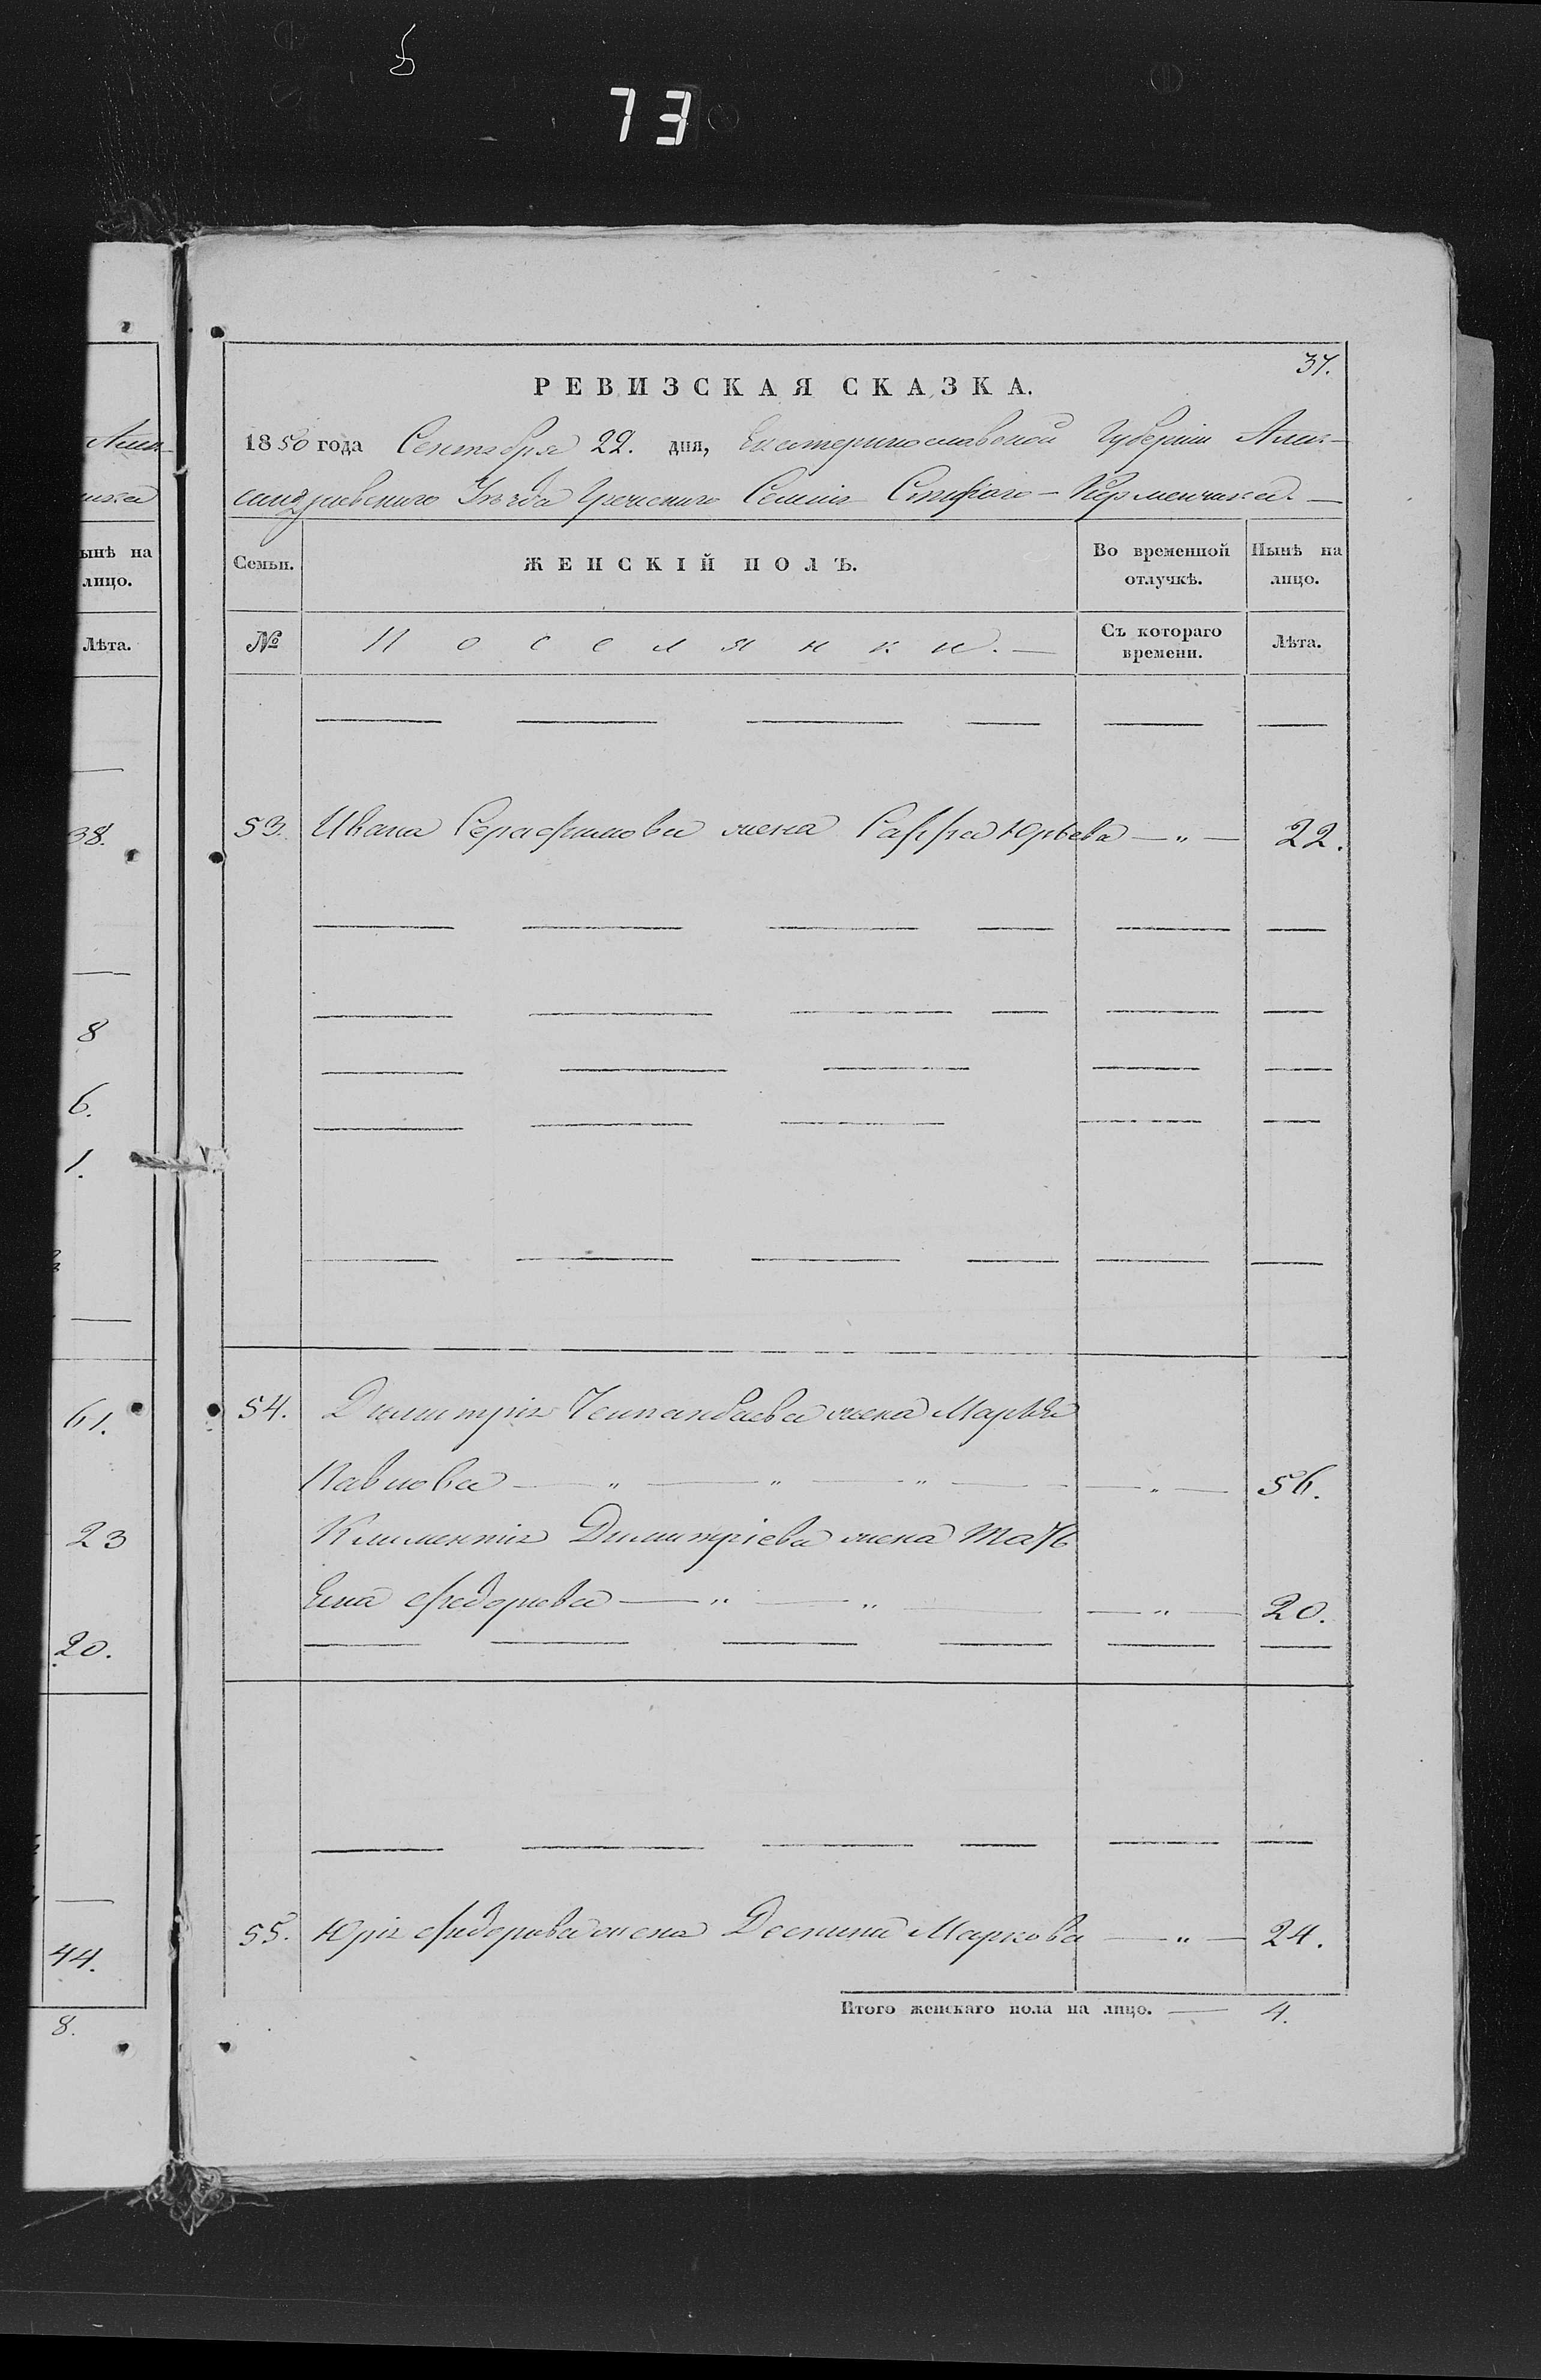 73
Алек-
ынѣ на
лицо.
Лѣта.
38.
8
6.
1.
61.
23
20.
44.
8.
37.
РЕВИЗСКАЯ СКАЗКА.
1850 года Сентября 22. дня, Екатеринославской Губерніи Алек-
сандровского Уѣзда Греческаго Селенія Стараго-Керменчика.
Семьи. ЖЕНСКІЙ ПОЛЪ. Во временной отлучкѣ. Нынѣ на лицо.
№ Поселянки. Съ котораго времени. Лѣта.
53. Ивана Серафимова жена Саффа Юрьева — „ — 22.
54. Димитрія жена Марья
Павлова — „ — „ — „ — „ — 56.
Климентія Димитріева жена
Федорова — „ — „ — „ — 20.
55. Юрія Федорова жена Деспина Маркова — „ — 24.
Итого женскаго пола на лицо. — 4.